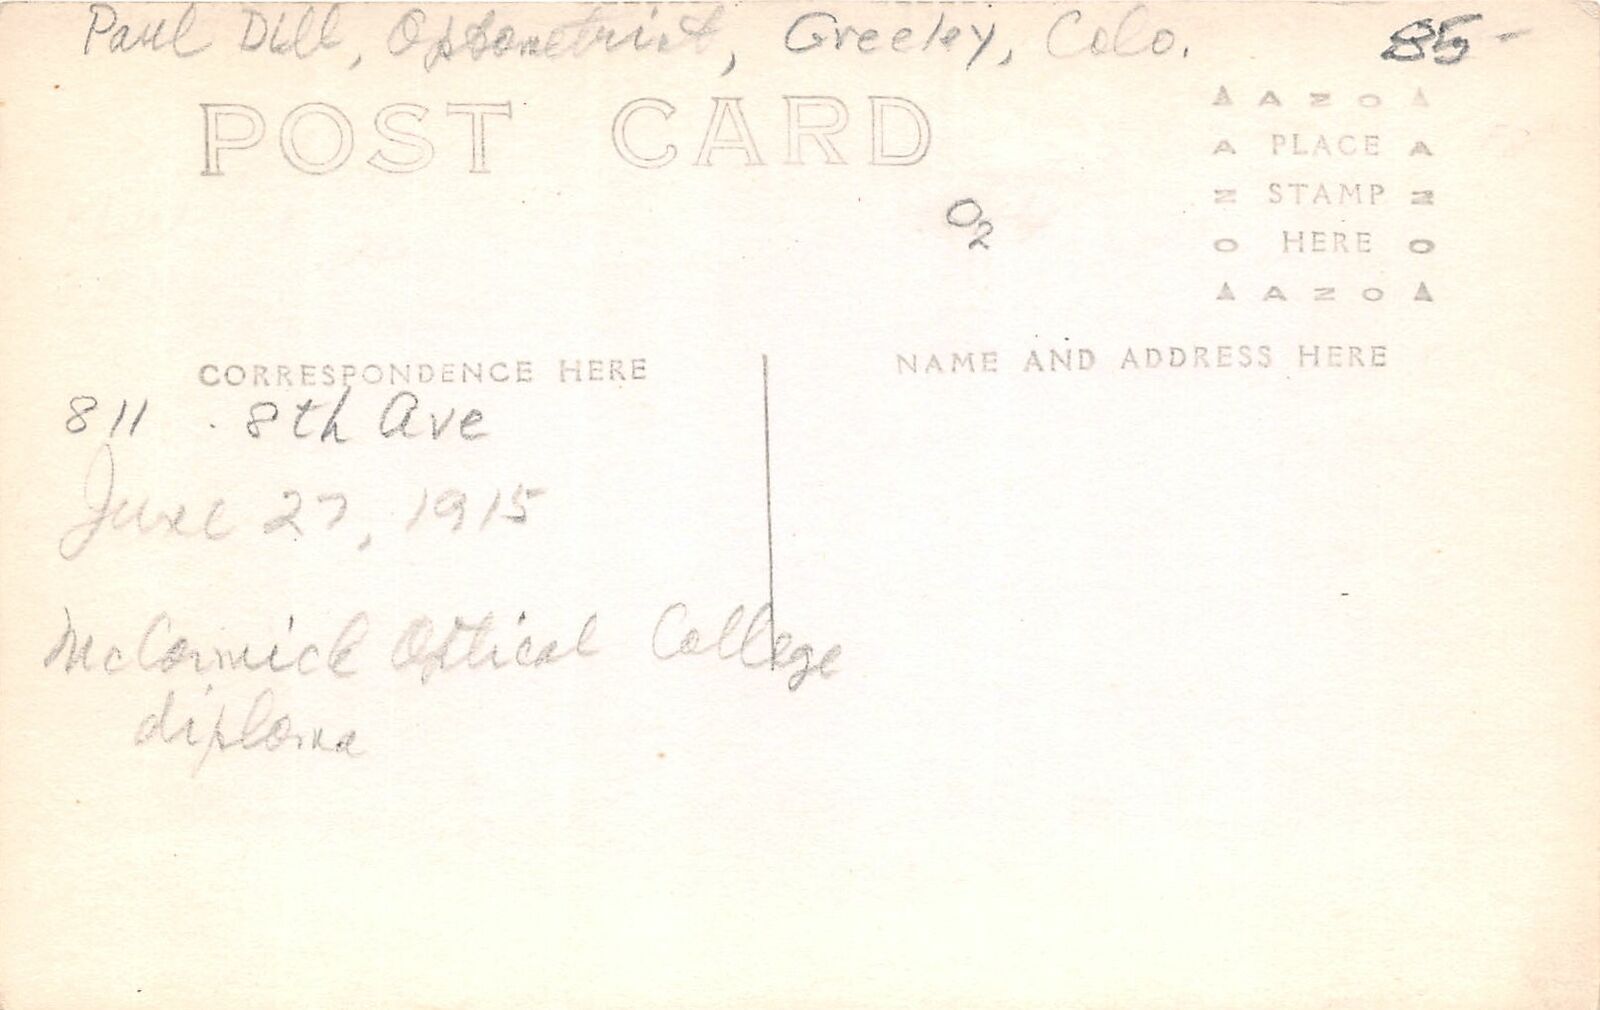 Paul Dill, Optometrist, Greeley, Colo.
85-
POST CARD
AZO
A PLACE A
Z STAMP Z
O HERE O
AZO
O2
CORRESPONDENCE HERE
NAME AND ADDRESS HERE
811 . 8th Ave
June 27, 1915
McCormick Optical College
diploma